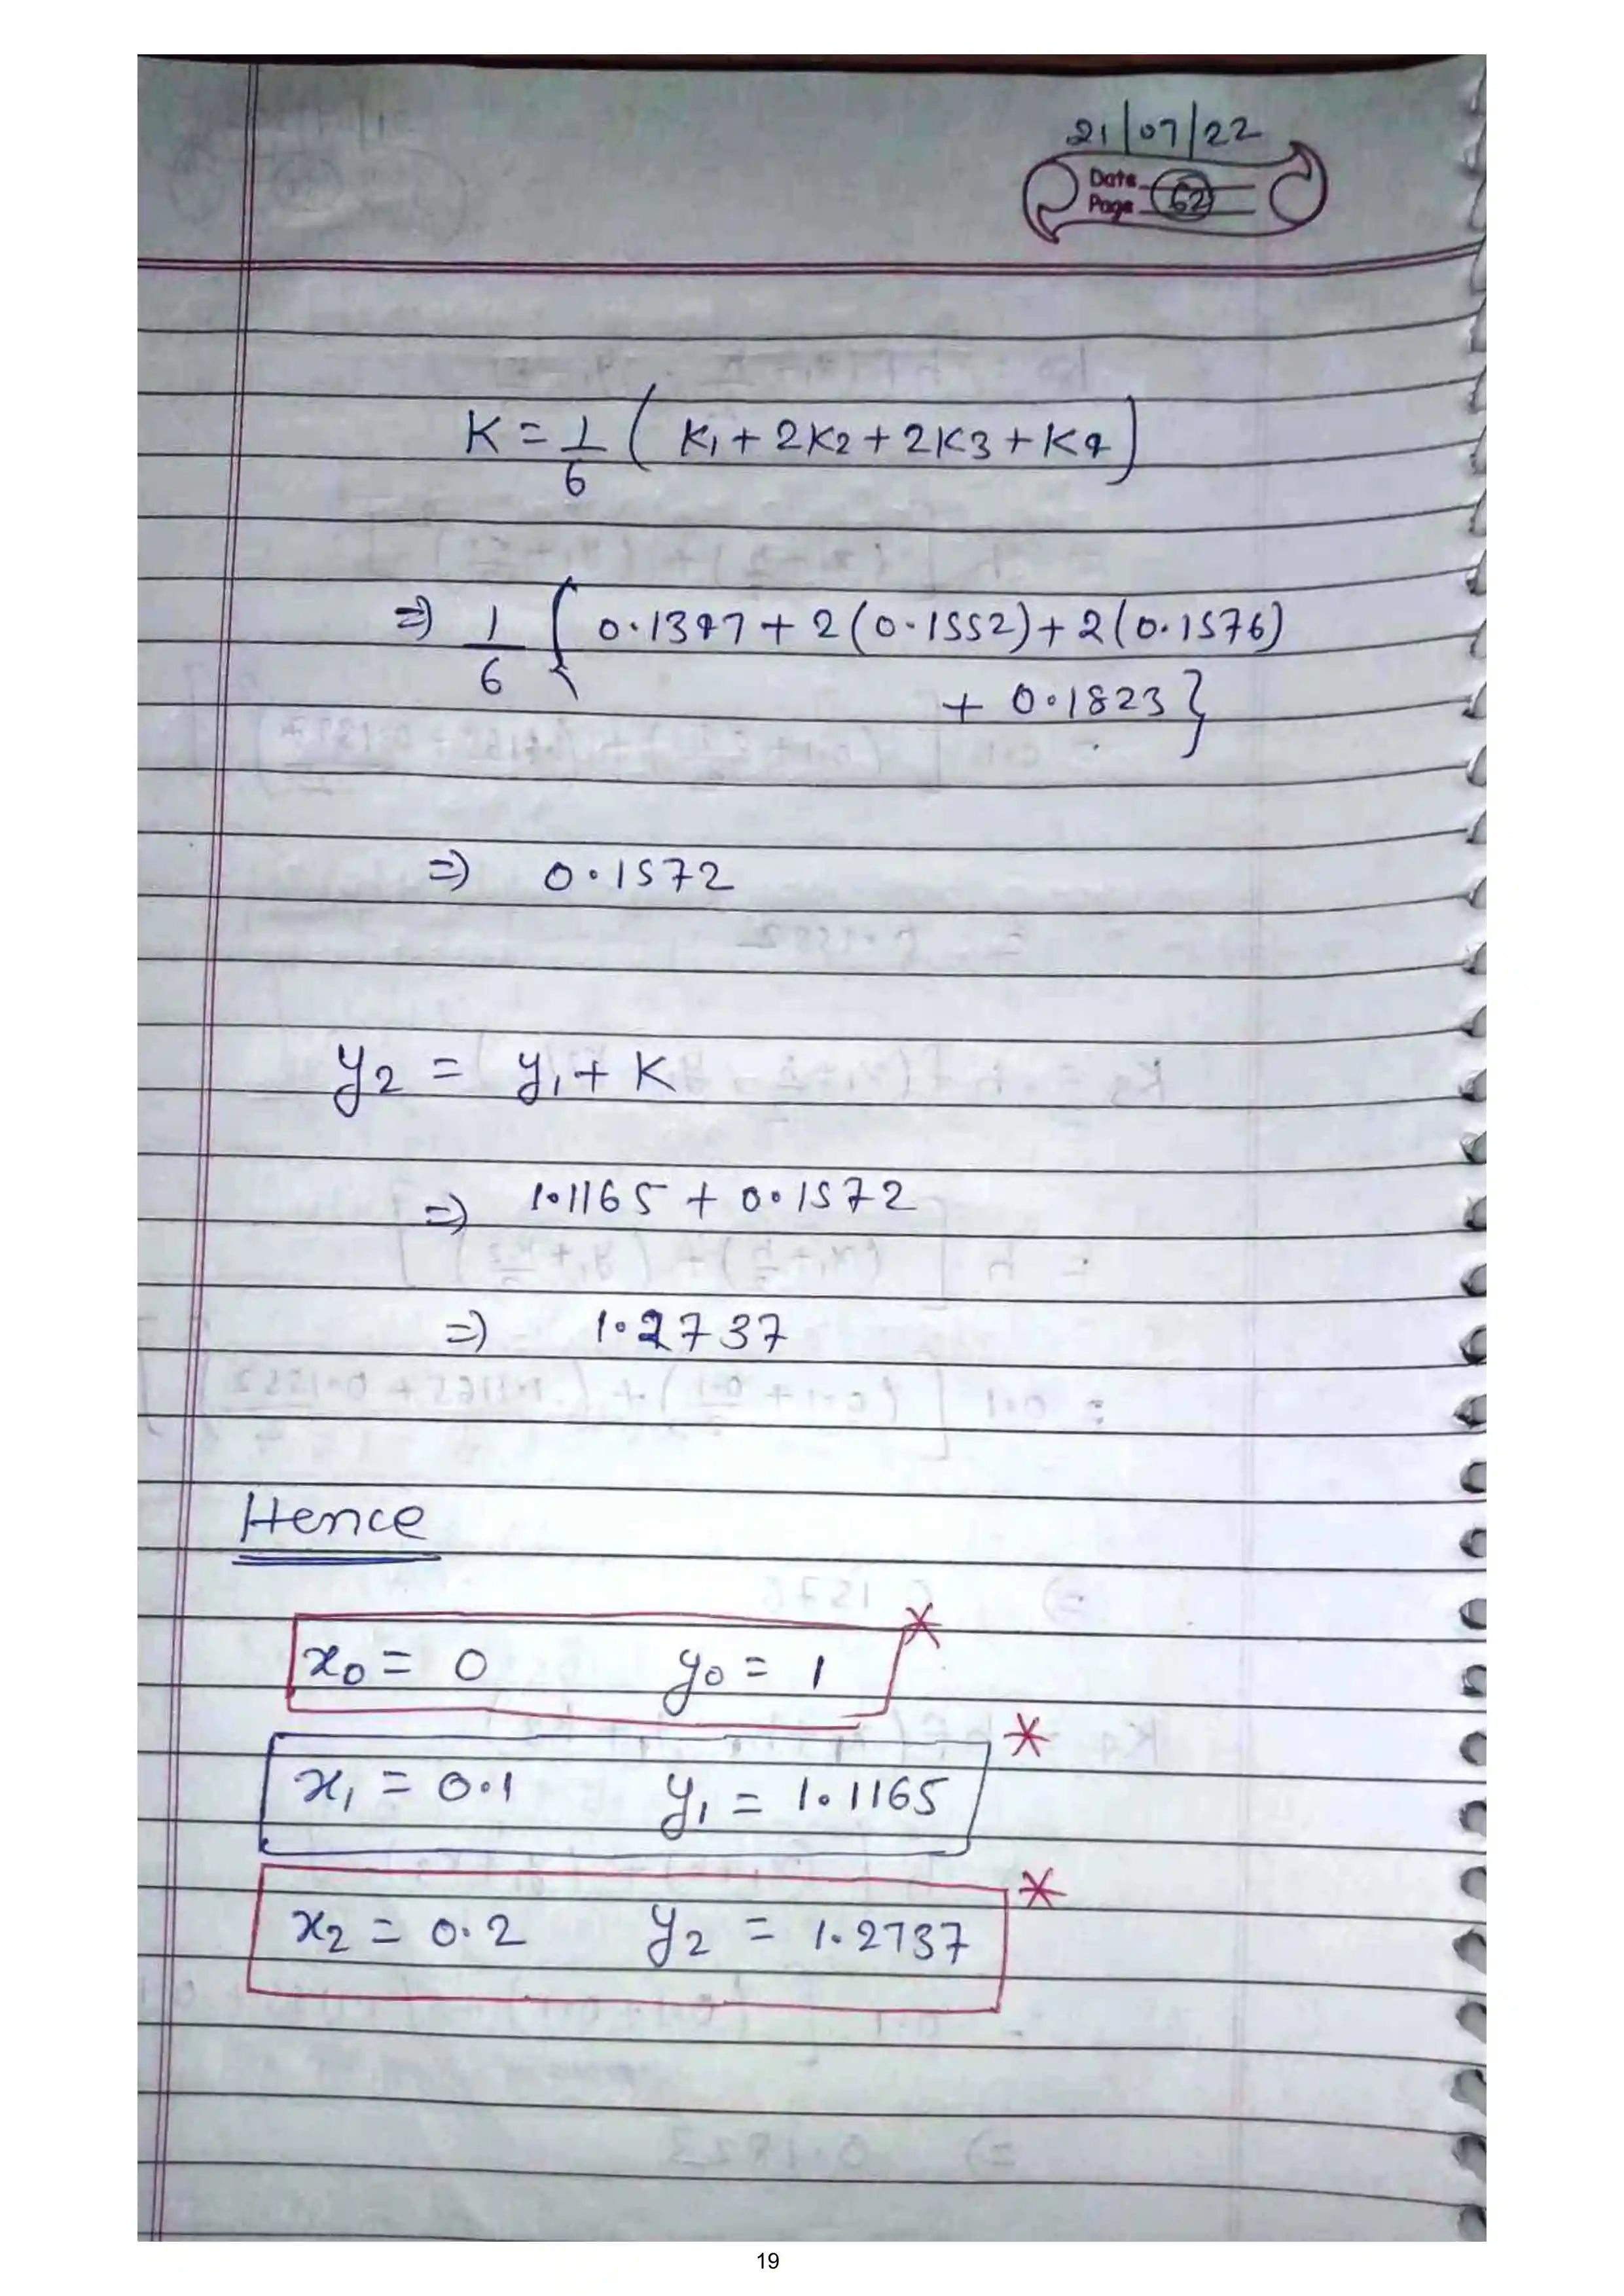 21/07/22
Date
Page 62
K = 1/6 ( K1 + 2K2 + 2K3 + K4 )
=> 1/6 { 0.1347 + 2(0.1552) + 2(0.1576)
+ 0.1823 }
=> 0.1572
y2 = y1 + K
=> 1.1165 + 0.1572
=> 1.2737
Hence
x0 = 0 y0 = 1 *
x1 = 0.1 y1 = 1.1165 *
x2 = 0.2 y2 = 1.2737 *
19